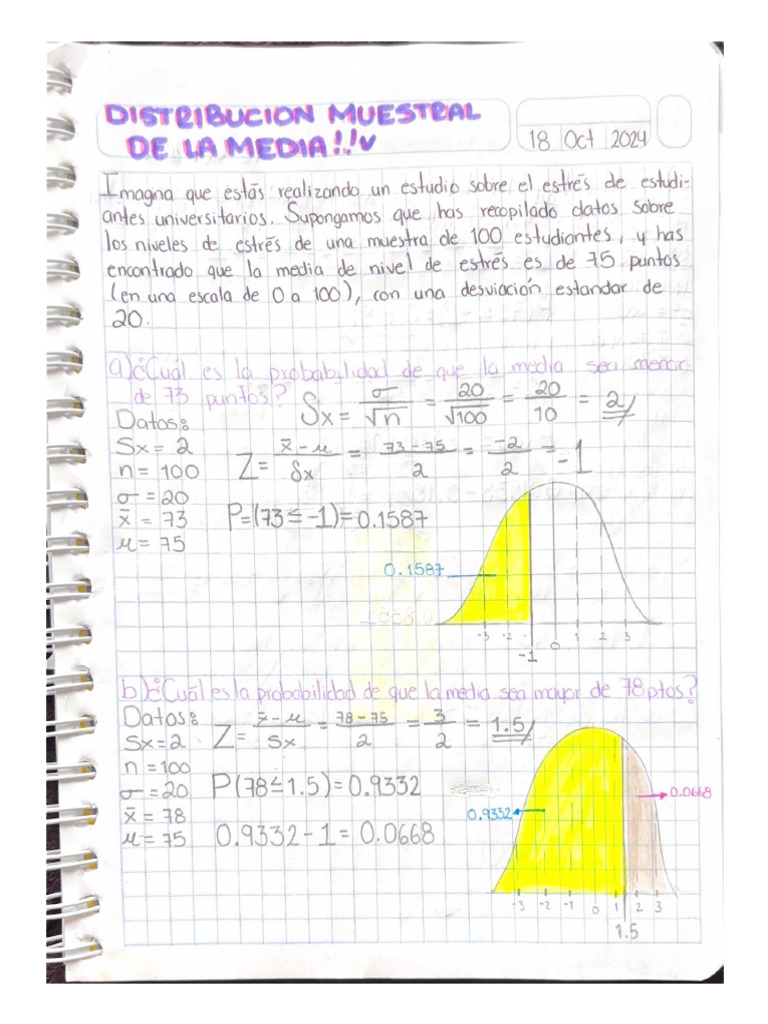 DISTRIBUCION MUESTRAL
DE LA MEDIA!!v
18 Oct 2024
Imagna que estás realizando un estudio sobre el estrés de estudi-
antes universitarios. Supongamos que has recopilado datos sobre
los niveles de estrés de una muestra de 100 estudiantes, y has
encontrado que la media de nivel de estrés es de 75 puntos
(en una escala de 0 a 100), con una desviación estandar de
20.
a) ¿Cuál es la probabilidad de que la media sea menor
de 73 puntos?
Sx = σ/√n = 20/√100 = 20/10 = 2
Datos:
Sx = 2
n = 100
σ = 20
x̄ = 73
μ = 75
Z = x̄ - μ / Sx = 73 - 75 / 2 = -2 / 2 = -1
P=(73 ≤ -1) = 0.1587
0.1587
-3 -2 -1 0 1 2 3
b) ¿Cuál es la probabilidad de que la media sea mayor de 78 ptos?
Datos:
Sx = 2
n = 100
σ = 20
x̄ = 78
μ = 75
Z = x̄ - μ / Sx = 78 - 75 / 2 = 3 / 2 = 1.5
P(78 ≤ 1.5) = 0.9332
0.9332 - 1 = 0.0668
0.9332
0.0668
-3 -2 -1 0 1 2 3
1.5